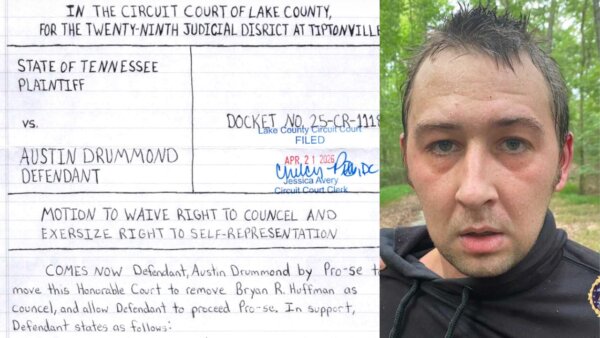 IN THE CIRCUIT COURT OF LAKE COUNTY,
FOR THE TWENTY-NINTH JUDICIAL DISRICT AT TIPTONVILLE
STATE OF TENNESSEE
PLAINTIFF
VS.
AUSTIN DRUMMOND
DEFENDANT
DOCKET NO. 25-CR-1118
Lake County Circuit Court
FILED
APR 21 2026
DC
Jessica Avery
Circuit Court Clerk
MOTION TO WAIVE RIGHT TO COUNCEL AND
EXERSIZE RIGHT TO SELF-REPRESENTATION
COMES NOW Defendant, Austin Drummond by Pro-se to
move this Honorable Court to remove Bryan R. Huffman as
councel, and allow Defendant to proceed Pro-se. In support,
Defendant states as follows: